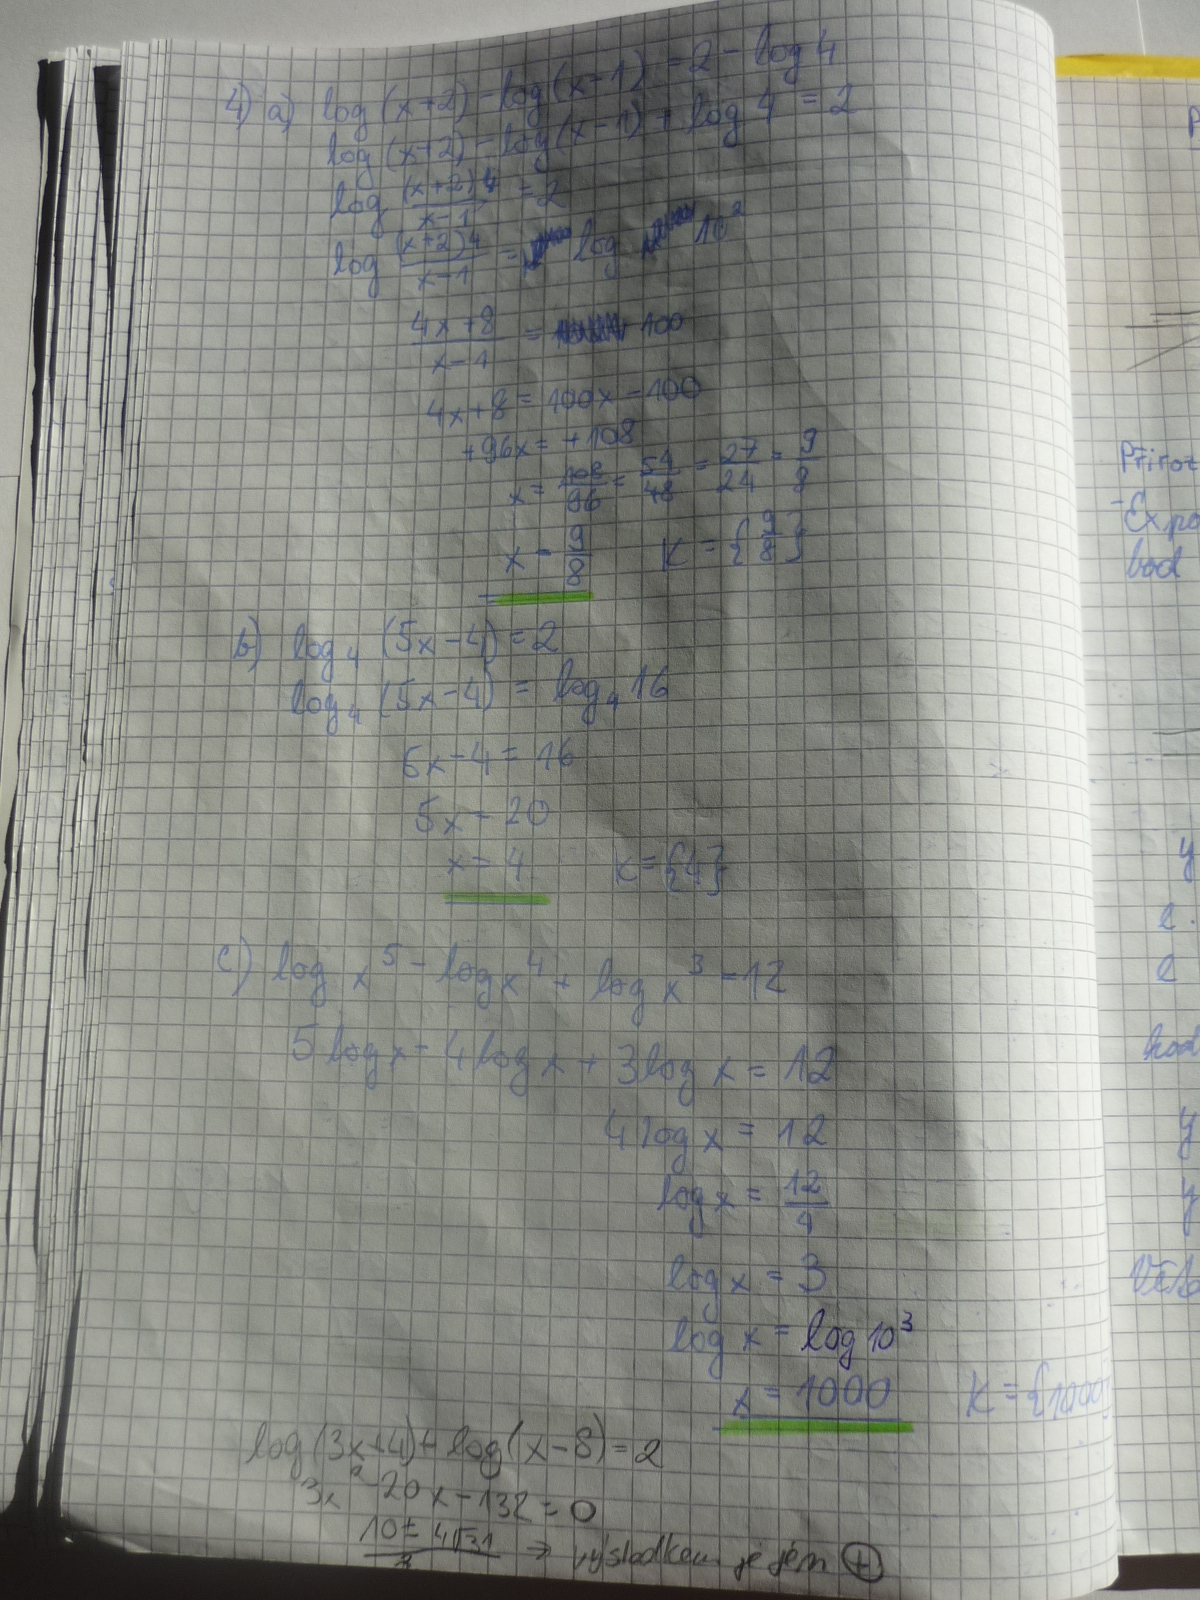 4) a) log (x+2) - log (x-1) = 2 - log 4
log (x+2) - log (x-1) + log 4 = 2
log (x+2)4 / x-1 = 2
log (x+2)4 / x-1 = log 10²
4x+8 / x-1 = 100
4x+8 = 100x - 100
+96x = +108
x = 108/96 = 54/48 = 27/24 = 9/8
x = 9/8 K = {9/8}
b) log₄ (5x-4) = 2
log₄ (5x-4) = log₄ 16
5x-4 = 16
5x = 20
x = 4 K = {4}
c) log x⁵ - log x⁴ + log x³ = 12
5 log x - 4 log x + 3 log x = 12
4 log x = 12
log x = 12/4
log x = 3
log x = log 10³
x = 1000 K = {1000}
log (3x+4) + log (x-8) = 2
3x² - 20x - 132 = 0
10 ± 4√31 / 3 → výsledkem je jen +
P
Přiroz
- Expo
bod
y
y
y